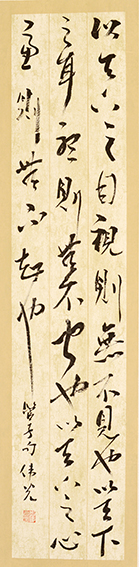 以天下之目視則無不見也以天下
之耳聽則無不聞也以天下之心
慮則無不知也
管子句 伟光